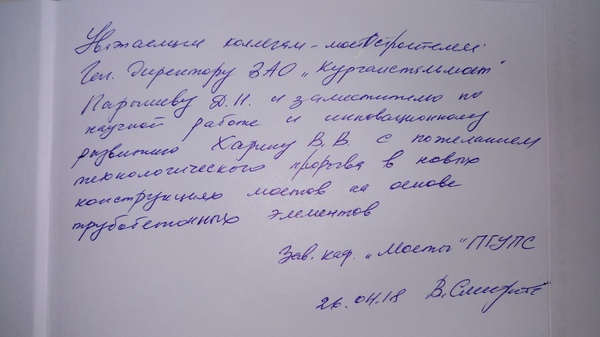 Уважаемым коллегам-мостостроителям:
Ген. Директору ЗАО „Курганстальмост"
Парышеву Д.Н. и заместителю по
научной работе и инновационному
развитию Харину В.В с пожеланием
технологического прорыва в новых
конструкциях мостов на основе
трубобетонных элементов
Зав. каф. „Мосты" ПГУПС
26.04.18 В.Смирнов